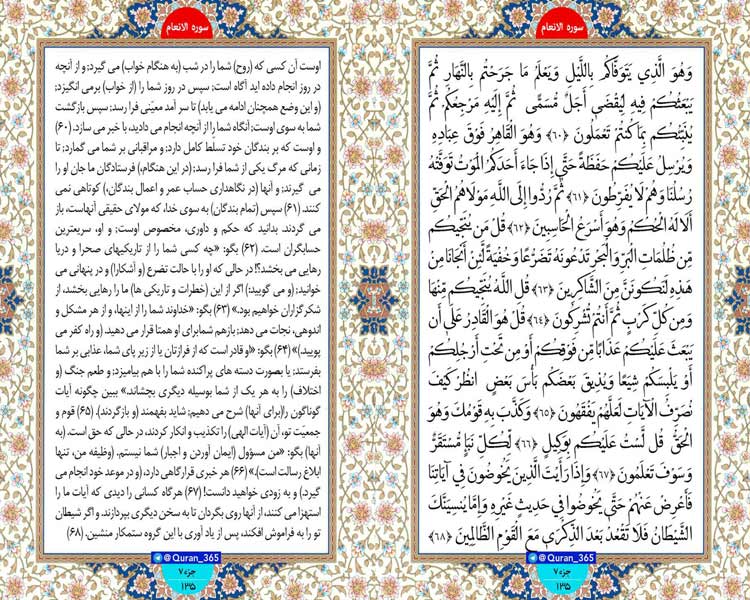 سوره الانعام
وَهُوَ الَّذِي يَتَوَفَّاكُم بِاللَّيْلِ وَيَعْلَمُ مَا جَرَحْتُم بِالنَّهَارِ ثُمَّ
يَبْعَثُكُمْ فِيهِ لِيُقْضَى أَجَلٌ مُّسَمًّى ثُمَّ إِلَيْهِ مَرْجِعُكُمْ ثُمَّ
يُنَبِّئُكُم بِمَا كُنتُمْ تَعْمَلُونَ ﴿۶۰﴾ وَهُوَ الْقَاهِرُ فَوْقَ عِبَادِهِ
وَيُرْسِلُ عَلَيْكُمْ حَفَظَةً حَتَّىَ إِذَا جَاءَ أَحَدَكُمُ الْمَوْتُ تَوَفَّتْهُ
رُسُلُنَا وَهُمْ لاَ يُفَرِّطُونَ ﴿۶۱﴾ ثُمَّ رُدُّوا إِلَى اللَّهِ مَوْلاَهُمُ الْحَقِّ
أَلاَ لَهُ الْحُكْمُ وَهُوَ أَسْرَعُ الْحَاسِبِينَ ﴿۶۲﴾ قُلْ مَن يُنَجِّيكُم
مِّن ظُلُمَاتِ الْبَرِّ وَالْبَحْرِ تَدْعُونَهُ تَضَرُّعاً وَخُفْيَةً لَّئِنْ أَنجَانَا مِنْ
هَذِهِ لَنَكُونَنَّ مِنَ الشَّاكِرِينَ ﴿۶۳﴾ قُلِ اللَّهُ يُنَجِّيكُم مِّنْهَا
وَمِن كُلِّ كَرْبٍ ثُمَّ أَنتُمْ تُشْرِكُونَ ﴿۶۴﴾ قُلْ هُوَ الْقَادِرُ عَلَى أَن
يَبْعَثَ عَلَيْكُمْ عَذَاباً مِّن فَوْقِكُمْ أَوْ مِن تَحْتِ أَرْجُلِكُمْ
أَوْ يَلْبِسَكُمْ شِيَعاً وَيُذِيقَ بَعْضَكُم بَأْسَ بَعْضٍ انظُرْ كَيْفَ
نُصَرِّفُ الآيَاتِ لَعَلَّهُمْ يَفْقَهُونَ ﴿۶۵﴾ وَكَذَّبَ بِهِ قَوْمُكَ وَهُوَ
الْحَقُّ قُل لَّسْتُ عَلَيْكُم بِوَكِيلٍ ﴿۶۶﴾ لِّكُلِّ نَبَإٍ مُّسْتَقَرٌّ
وَسَوْفَ تَعْلَمُونَ ﴿۶۷﴾ وَإِذَا رَأَيْتَ الَّذِينَ يَخُوضُونَ فِي آيَاتِنَا
فَأَعْرِضْ عَنْهُمْ حَتَّى يَخُوضُوا فِي حَدِيثٍ غَيْرِهِ وَإِمَّا يُنسِيَنَّكَ
الشَّيْطَانُ فَلاَ تَقْعُدْ بَعْدَ الذِّكْرَى مَعَ الْقَوْمِ الظَّالِمِينَ ﴿۶۸﴾
@Quran_365
جزء ۷
۱۳۵
سوره الانعام
اوست آن کسی که (روح) شما را در شب (به هنگام خواب) می گیرد؛ و از آنچه
در روز انجام داده اید آگاه است؛ سپس در روز شما را (از خواب) برمی انگیزد؛
(و این وضع همچنان ادامه می یابد) تا سر آمد معیّنی فرا رسد؛ سپس بازگشت
شما به سوی اوست؛ آنگاه شما را از آنچه انجام می دادید، با خبر می سازد. (۶۰)
و اوست که بر بندگان خود تسلّط کامل دارد؛ و مراقبانی بر شما می گمارد؛ تا
زمانی که مرگ یکی از شما فرا رسد؛ (در این هنگام،) فرستادگان ما جان او را
می گیرند؛ و آنها (در نگاهداری حساب عمر و اعمال بندگان،) کوتاهی نمی
کنند. (۶۱) سپس (تمام بندگان) به سوی خدا، که مولای حقیقی آنهاست، باز
می گردند. بدانید که حکم و داوری، مخصوص اوست؛ و او، سریعترین
حسابگران است. (۶۲) بگو: «چه کسی شما را از تاریکیهای صحرا و دریا
رهایی می بخشد؟! در حالی که او را با حالت تضرع (و آشکارا) و در پنهانی می
خوانید؛ (و می گویید:) اگر از این (خطرات و تاریکی ها) ما را رهایی بخشد، از
شکرگزاران خواهیم بود.» (۶۳) بگو: «خداوند شما را از اینها، و از هر مشکل و
اندوهی، نجات می دهد؛ بازهم شمابرای او همتا قرار می دهید. (و راه کفر می
پویید.)» (۶۴) بگو: «و قادر است که از فرازتان یا از زیر پای شما، عذابی بر شما
بفرستد؛ یا بصورت دسته های پراکنده شما را با هم بیامیزد؛ و طعم جنگ (و
اختلاف) را به هر یک از شما بوسیله دیگری بچشاند.» ببین چگونه آیات
گوناگون را(برای آنها) شرح می دهیم؛ شاید بفهمند (و بازگردند). (۶۵) قوم و
جمعیّت تو، آن (آیات الهی) را تکذیب و انکار کردند، در حالی که حق است. (به
آنها) بگو: «من مسؤول (ایمان آوردن و اجبار) شما نیستم. (وظیفه من، تنها
ابلاغ رسالت است).» (۶۶) هر خبری قرارگاهی دارد، (و در موعد خود انجام می
گیرد.) و به زودی خواهید دانست! (۶۷) هرگاه کسانی را دیدی که آیات ما را
استهزا می کنند، از آنها روی بگردان تا به سخن دیگری بپردازند. و اگر شیطان
تو را به فراموش افکند، پس از یاد آوری با این گروه ستمکار منشین. (۶۸)
@Quran_365
جزء ۷
۱۳۵